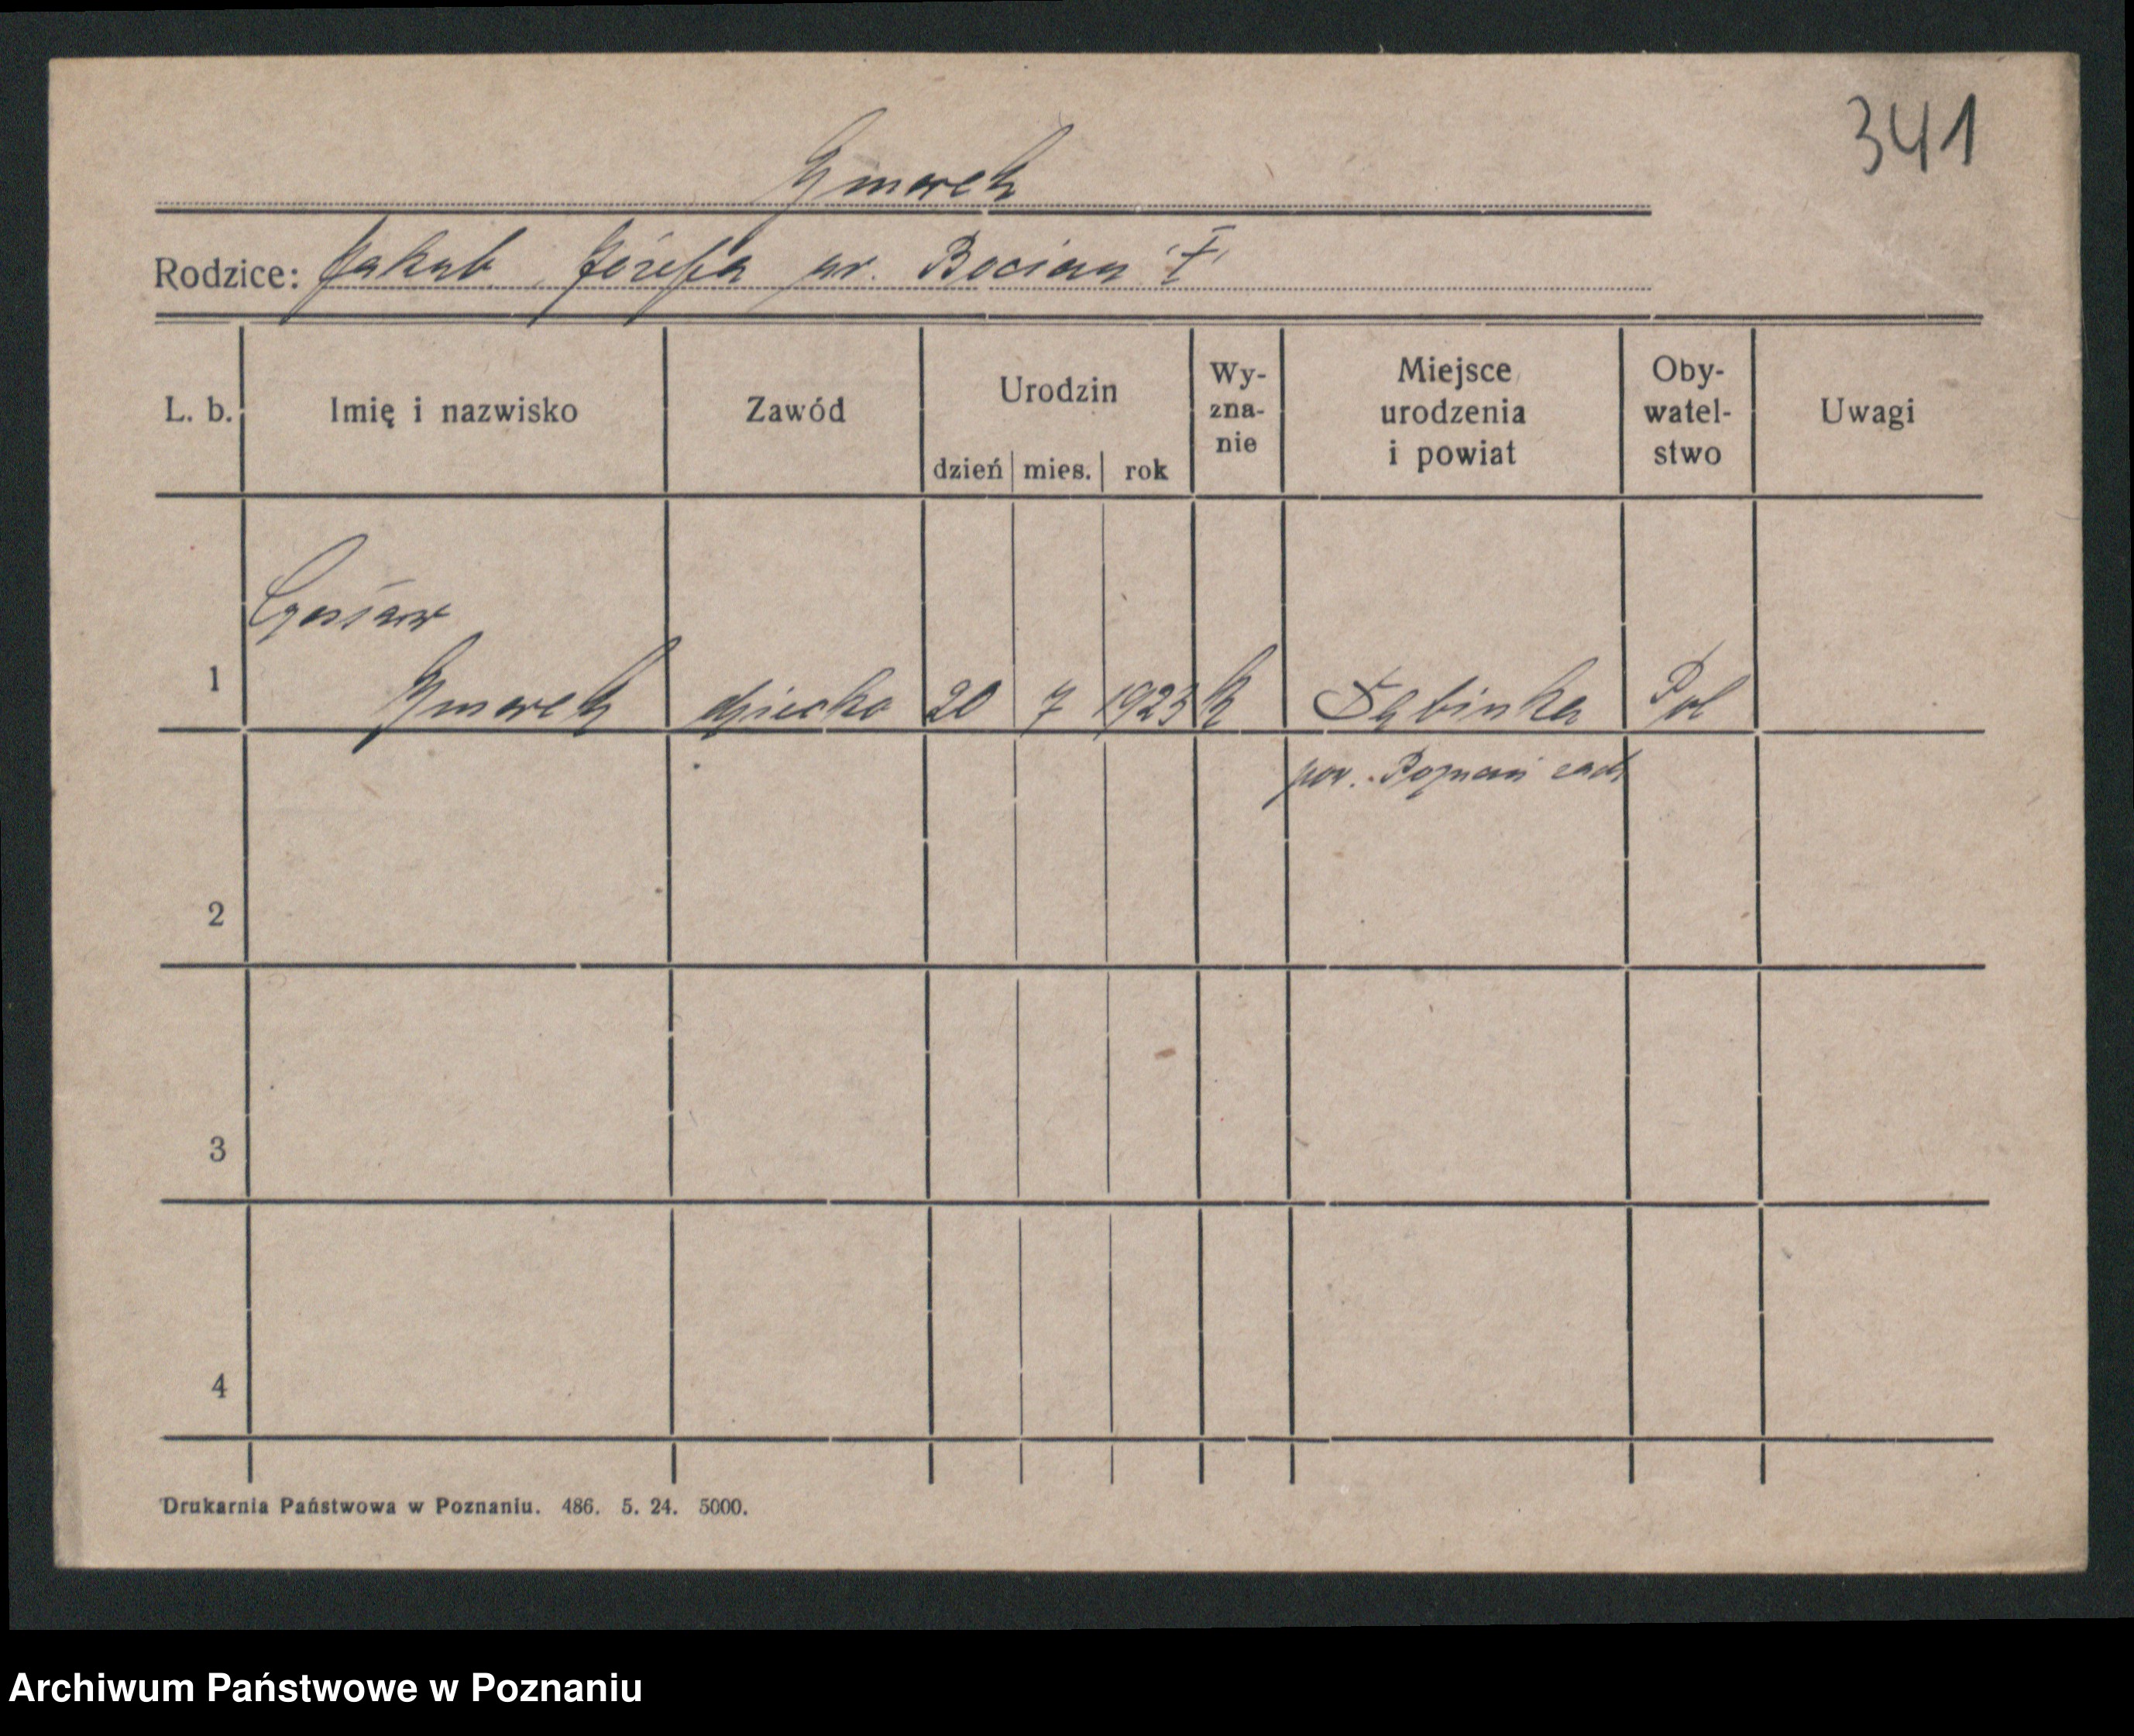 341
Gmerek
Rodzice: Jakub, Józefa ur. Bocian I
L. b. Imię i nazwisko Zawód Urodzin dzień mies. rok Wy-zna-nie Miejsce urodzenia i powiat Oby-watel-stwo Uwagi
Czesław
1 Gmerek dziecko 20 7 1923 k Dębinka Pol
pow. Poznań zach
2
3
4
Drukarnia Państwowa w Poznaniu. 486. 5. 24. 5000.
Archiwum Państwowe w Poznaniu